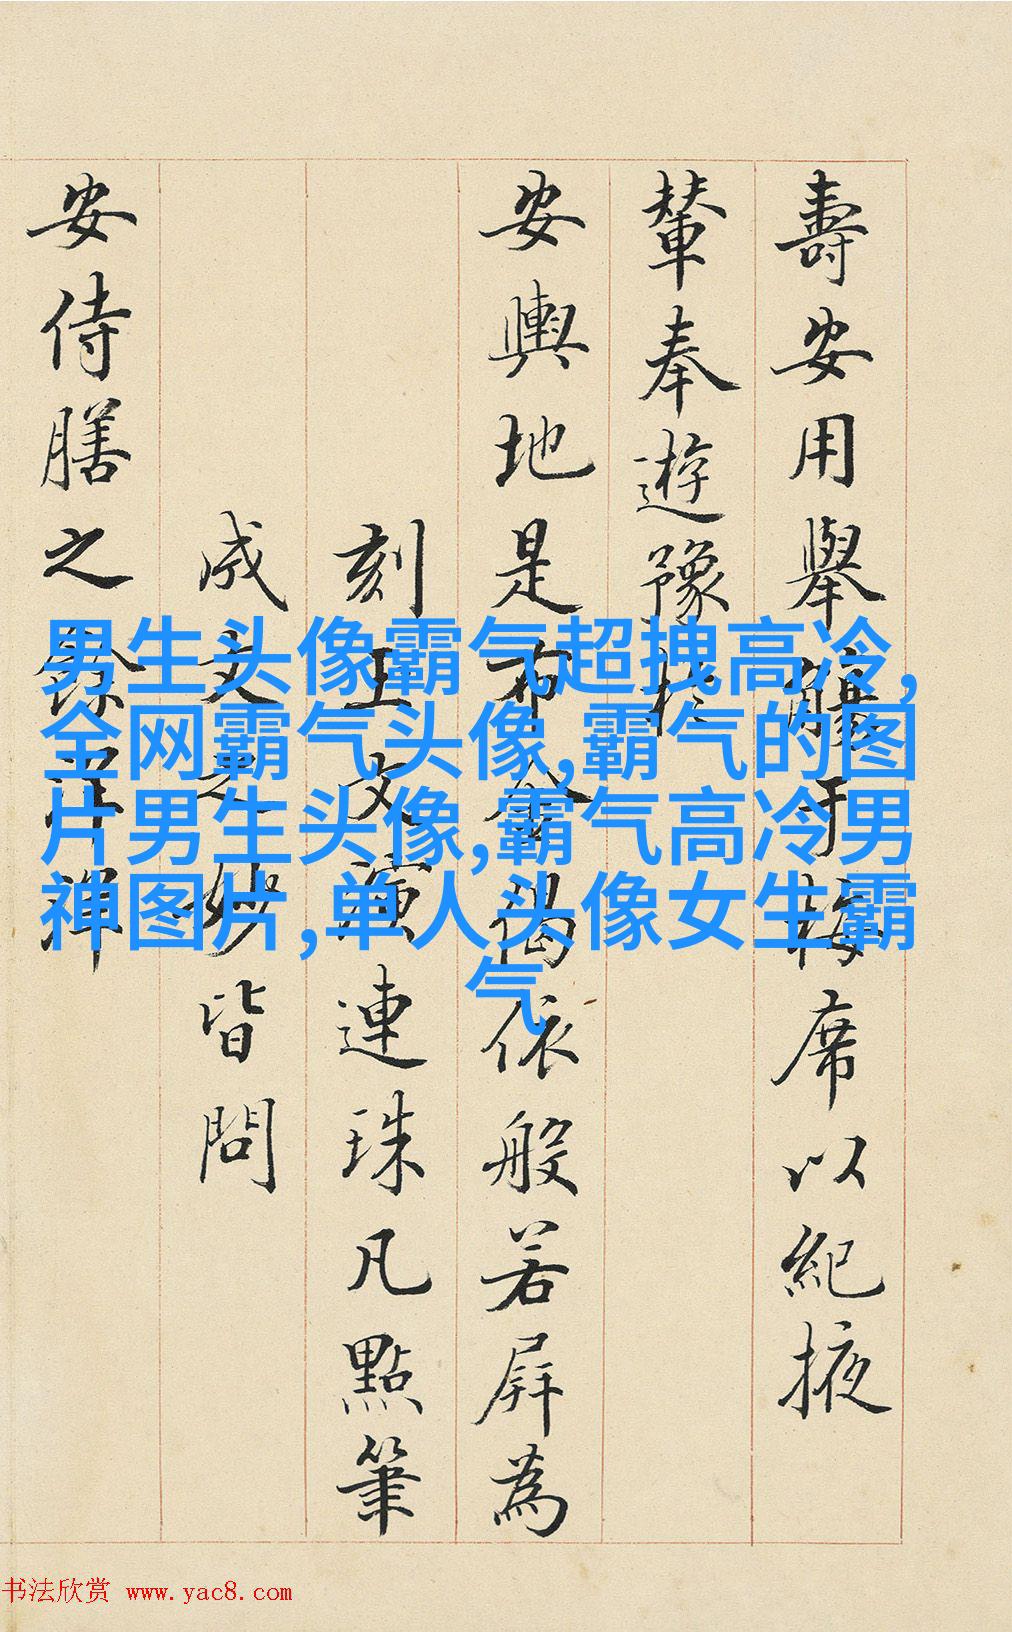 壽安用舉觴于梅席以紀掖
輦奉遊豫於
安輿地是布金偈依般若屏為
刻工文演連珠凡點筆
成文之妙皆問
安侍膳之餘洋禪
男生头像霸气超拽高冷,
全网霸气头像,霸气的图
片男生头像,霸气高冷男
神图片,单人头像女生霸
气
书法欣赏 www.yac8.com